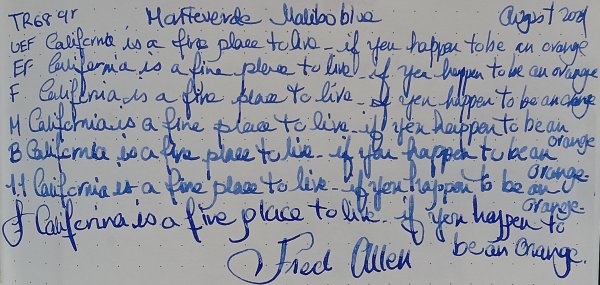 TR68 gr Monteverde Malibo blue August 2021
UEF California is a fine place to live - if you happen to be an orange
EF California is a fine place to live - if you happen to be an orange
F California is a fine place to live - if you happen to be an orange
M California is a fine place to live - if you happen to be an
orange
B California is a fine place to live - if you happen to be an
orange
1.1 California is a fine place to live - if you happen to be an
orange
f California is a fine place to live - if you happen to
be an orange.
Fred Allen